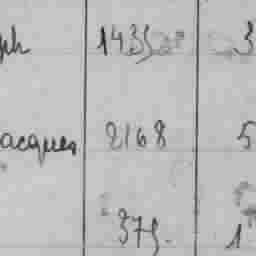 ph 1435 3
acques 2168 5
375. 1